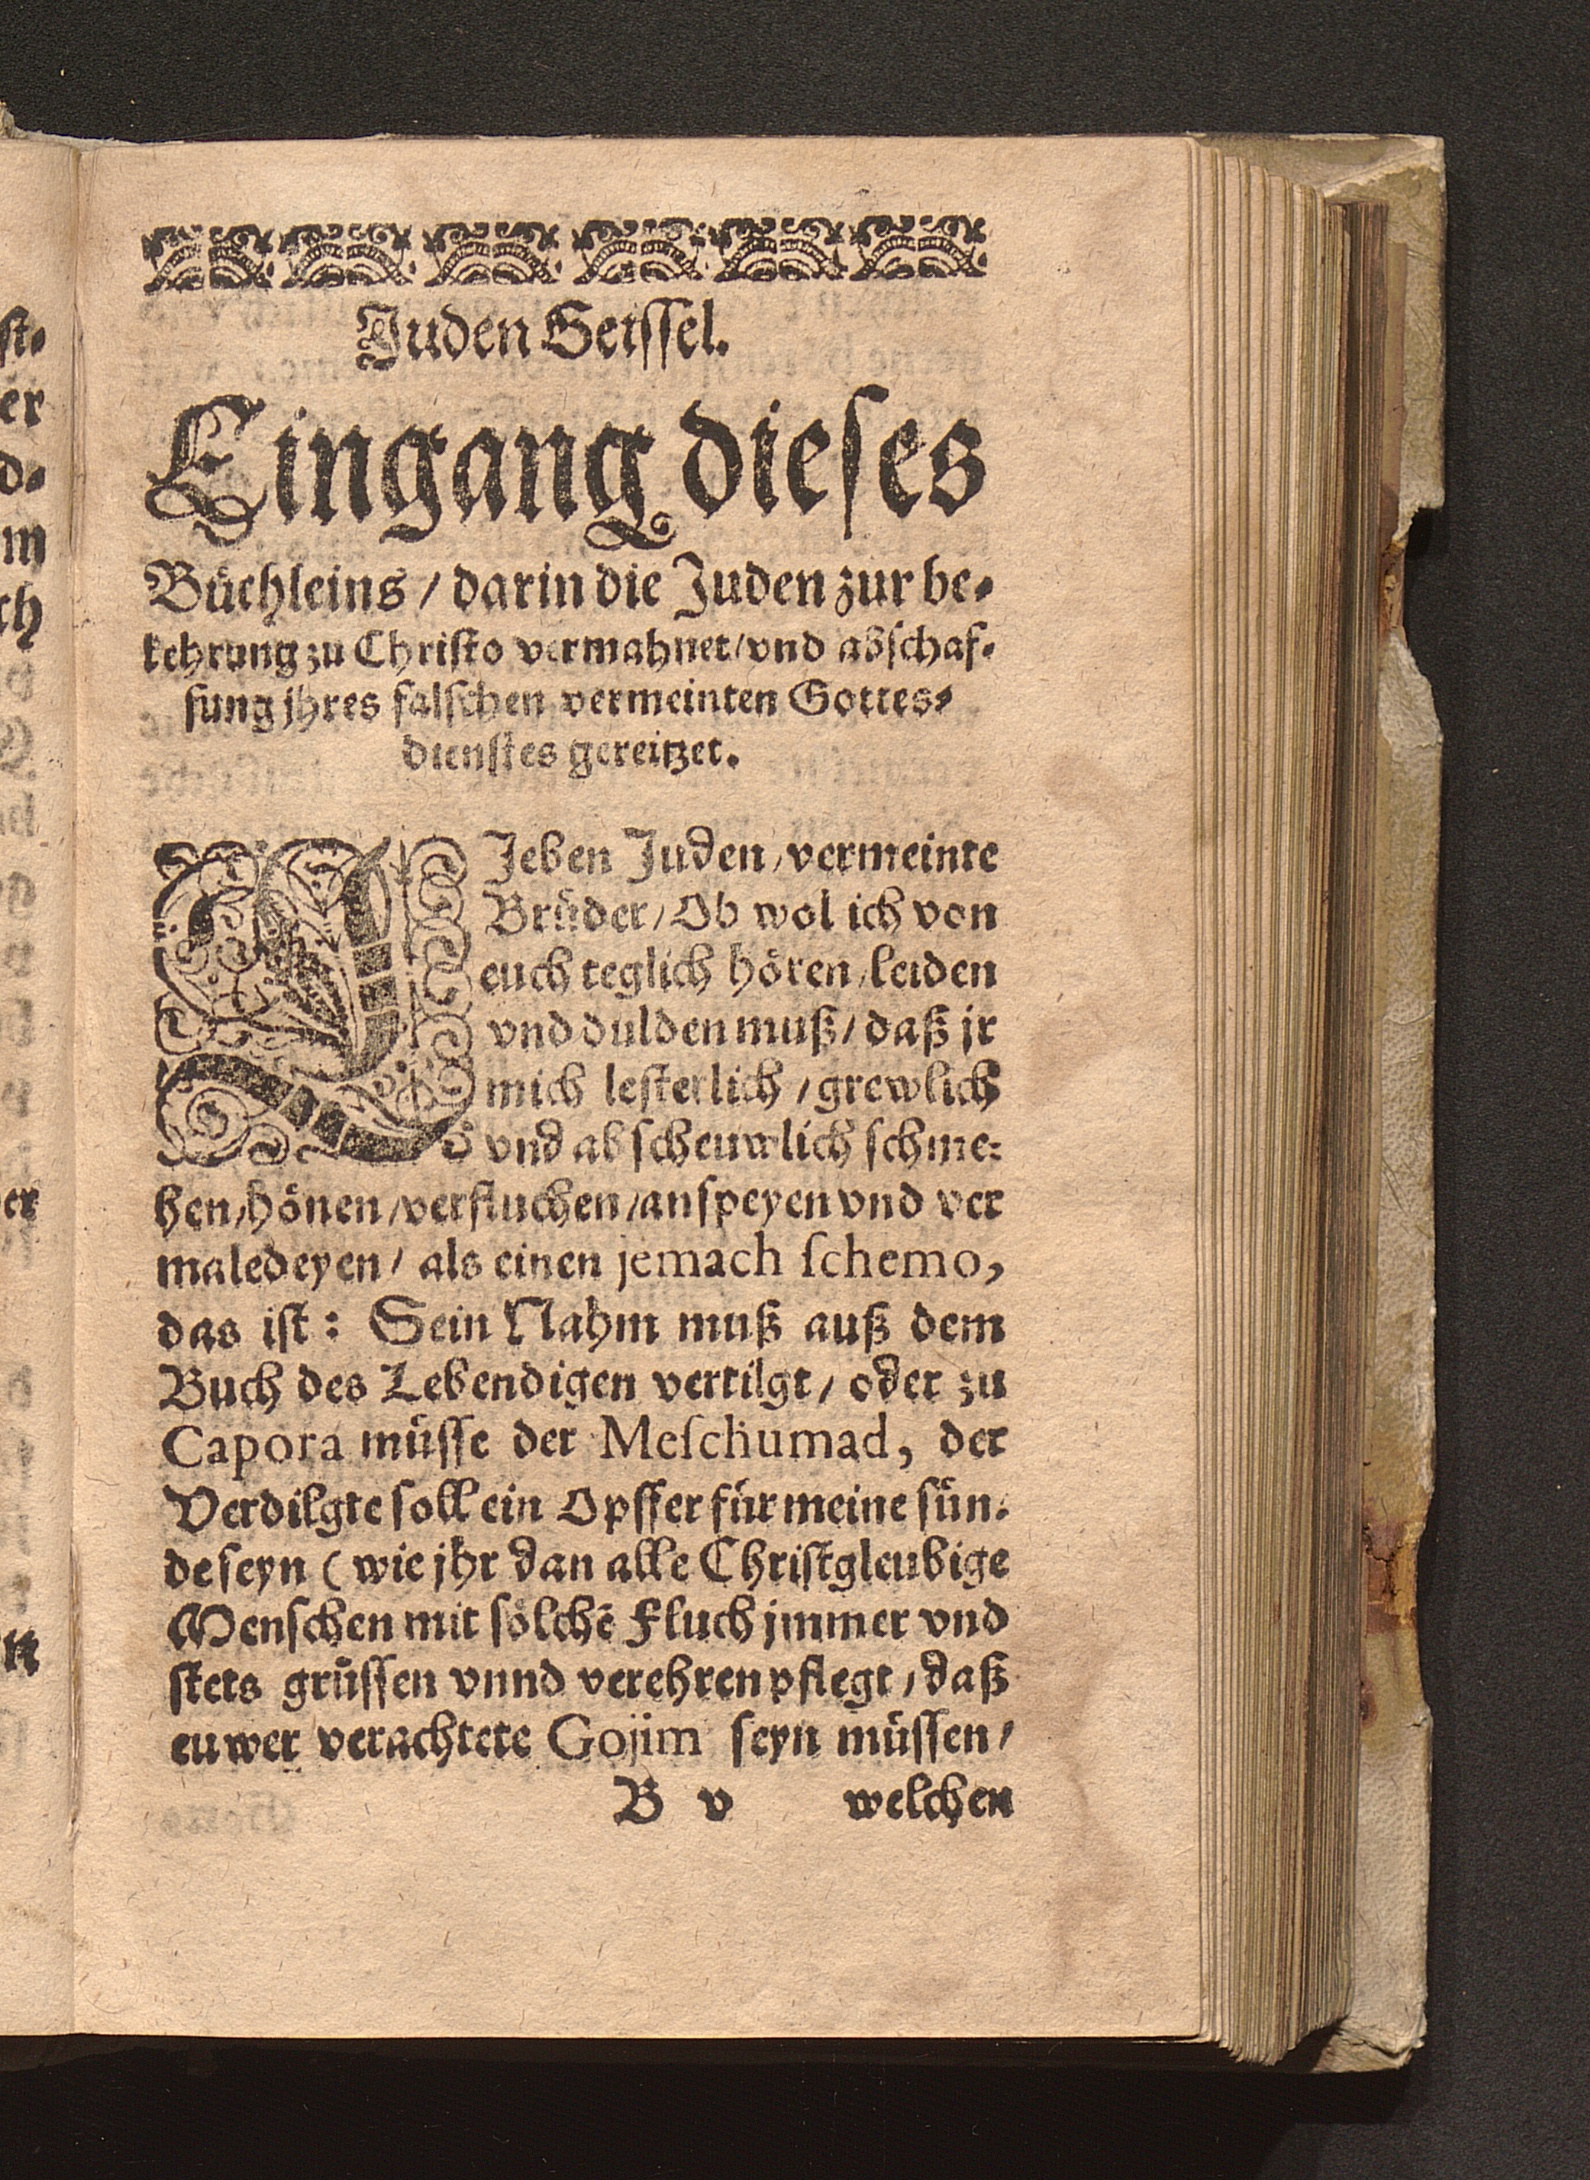 Juden Geissel.
Eingang dieses
Büchleins / darin die Juden zur be-
kehrung zu Christo vermahnet / vnd abschaf-
fung jhres falschen vermeinten Gottes-
dienstes gereitzet.
LIeben Juden / vermeinte
Brüder / Ob wol ich von
euch teglich hören / leiden
vnd dulden muß / daß jr
mich lesterlich / grewlich
vnd abscheuwlich schme-
hen / hönen / verfluchen / anspeyen vnd ver
maledeyen / als einen jemach schemo,
das ist: Sein Nahm muß auß dem
Buch des Lebendigen vertilgt / oder zu
Capora müsse der Meschumad, der
Verdilgte soll ein Opffer für meine sün-
de seyn (wie jhr dan alle Christgleubige
Menschen mit sölchē Fluch jmmer vnd
stets grüssen vnnd verehren pflegt / daß
euwer verachtete Gojim seyn müssen /
B v welchen